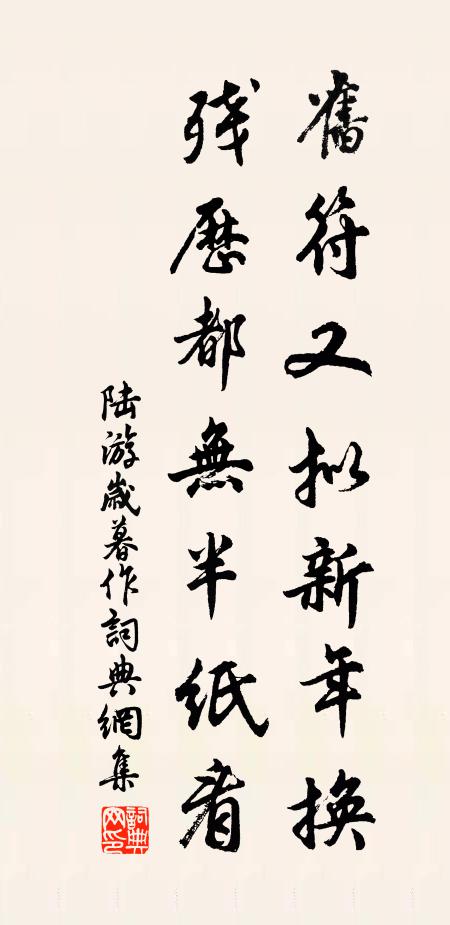 舊符又拟新年换
残歷都無半纸看
陆游歲暮作詞典網集
詞典網印